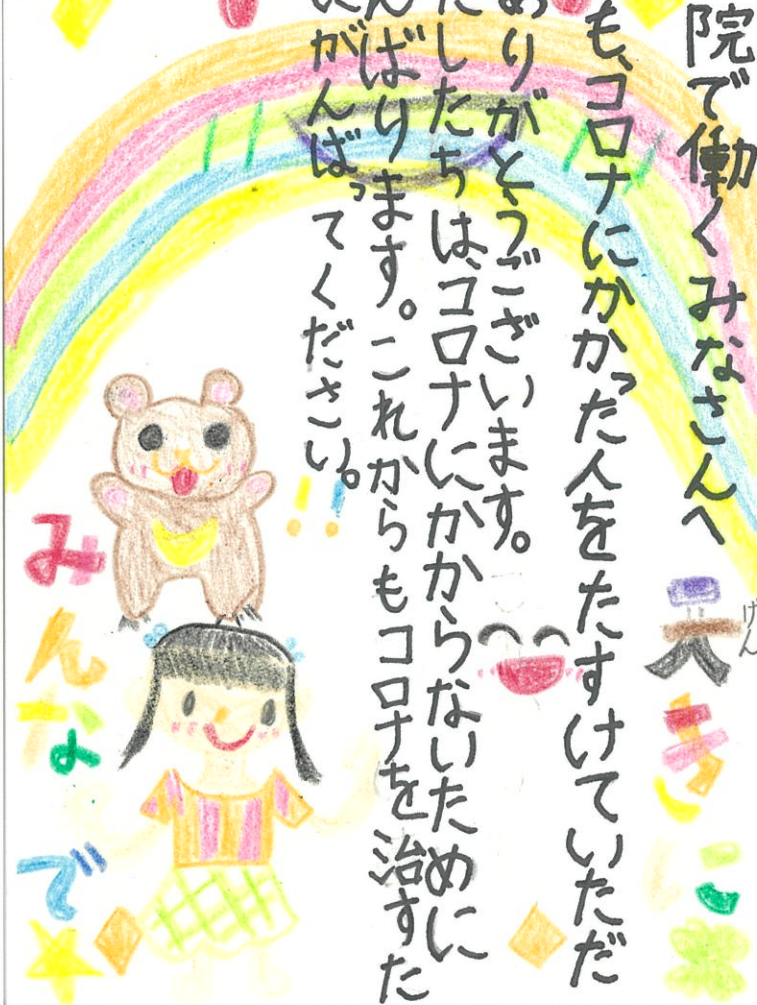 院で働くみなさんへ
も、コロナにかかった人をたすけていただ
ありがとうございます。
たしたちは、コロナにかからないために
んばります。これからもコロナを治すた
にがんばってください。
!!
げん
元きに
みんなで